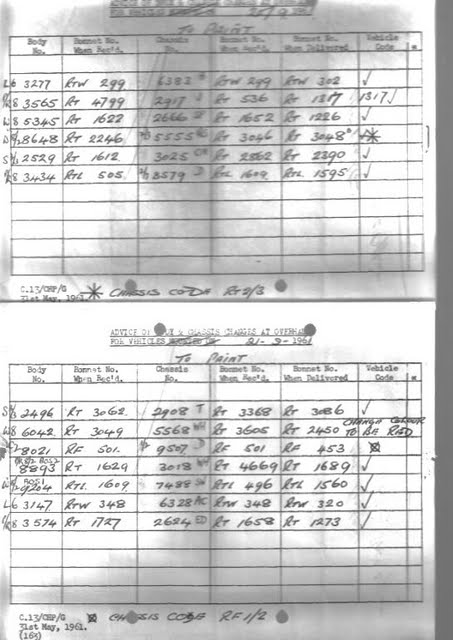 ADVICE OF BODY & CHASSIS CHANGES AT OVERHAUL
FOR VEHICLES
TO PAINT
Body No. Bonnet No. When Rec'd. Chassis No. Bonnet No. When Rec'd. Bonnet No. When Delivered Vehicle Code *
L6 3277 RTW 299 6383 RTW 299 RTW 302 ✓
8 3565 RT 4799 2917 RT 536 RT 1317 1317 ✓
W8 5345 RT 1622 2666 RT 1652 RT 1226 ✓
8648 RT 2246 5555 RT 3046 RT 3048
2529 RT 1612 3025 RT 2862 RT 2390 ✓
8 3434 RTL 505 3579 D RTL 1609 RTL 1595 ✓
C.13/CHP/G CHASSIS CODE RT 2/3
31st May, 1961.
ADVICE OF BODY & CHASSIS CHANGES AT OVERHAUL
FOR VEHICLES 21-9-1961
TO PAINT
Body No. Bonnet No. When Rec'd. Chassis No. Bonnet No. When Rec'd. Bonnet No. When Delivered Vehicle Code *
2496 RT 3062 2908 T RT 3368 RT 3086 ✓
W8 6042 RT 3049 5568 WH RT 3605 RT 2450 CHANGE COLOUR TO BE RED
8021 RF 501 9507 RF 501 RF 453
8893 RT 1629 3018 WH RT 4669 RT 1689 ✓
9204 RTL 1609 7488 RTL 496 RTL 1560 ✓
L6 3147 RTW 348 6328 RTW 348 RTW 320 ✓
8 3574 RT 1727 2624 ED RT 1658 RT 1273 ✓
C.13/CHP/G CHASSIS CODE RF 1/2
31st May, 1961.
(163)